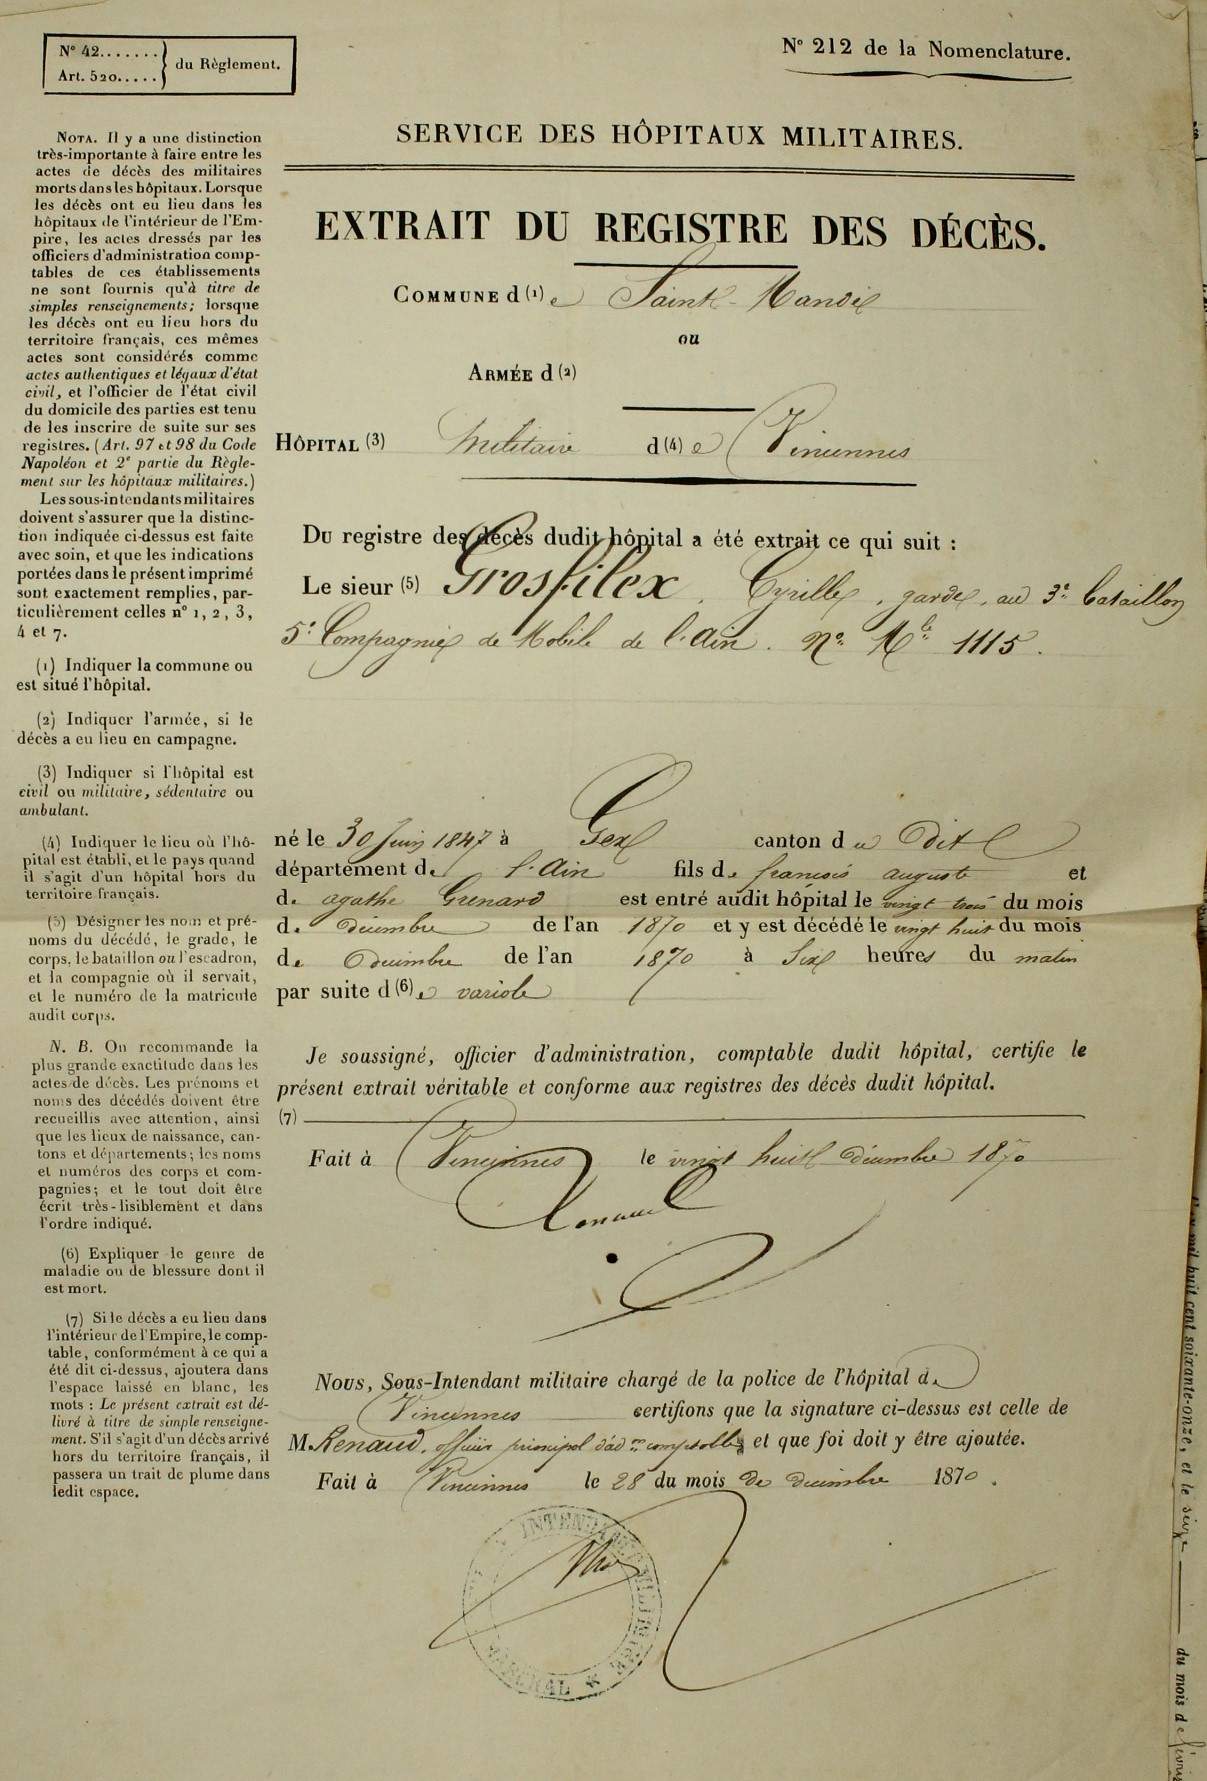 N° 42.......
Art. 520.....
du Règlement.
N° 212 de la Nomenclature.
SERVICE DES HÔPITAUX MILITAIRES.
EXTRAIT DU REGISTRE DES DÉCÈS.
COMMUNE d (1) e Saint-Mandé
ou
ARMÉE d (2)
HÔPITAL (3) Militaire d (4) e Vincennes
Du registre des décès dudit hôpital a été extrait ce qui suit :
Le sieur (5) Grosfilex, Cyrille, garde, au 3e Bataillon
5e Compagnie de Mobile de l'Ain. No Mle 1115.
né le 30 Juin 1847 à Gex canton d u dit
département de l'Ain fils de françois auguste et
de agathe Grenard est entré audit hôpital le vingt trois du mois
de décembre de l'an 1870 et y est décédé le vingt huit du mois
de Décembre de l'an 1870 à Six heures du matin
par suite d (6) e variole
Je soussigné, officier d'administration, comptable dudit hôpital, certifie le
présent extrait véritable et conforme aux registres des décès dudit hôpital.
(7)
Fait à Vincennes le vingt huit Décembre 1870
Renaud
Nous, Sous-Intendant militaire chargé de la police de l'hôpital de
Vincennes certifions que la signature ci-dessus est celle de
M. Renaud, officier principal d'adon comptable et que foi doit y être ajoutée.
Fait à Vincennes le 28 du mois de décembre 1870.
INTENDANCE MILITAIRE
NOTA. Il y a une distinction
très-importante à faire entre les
actes de décès des militaires
morts dans les hôpitaux. Lorsque
les décès ont eu lieu dans les
hôpitaux de l'intérieur de l'Em-
pire, les actes dressés par les
officiers d'administration comp-
tables de ces établissements
ne sont fournis qu'à titre de
simples renseignements; lorsque
les décès ont eu lieu hors du
territoire français, ces mêmes
actes sont considérés comme
actes authentiques et légaux d'état
civil, et l'officier de l'état civil
du domicile des parties est tenu
de les inscrire de suite sur ses
registres. (Art. 97 et 98 du Code
Napoléon et 2e partie du Règle-
ment sur les hôpitaux militaires.)
Les sous-intendants militaires
doivent s'assurer que la distinc-
tion indiquée ci-dessus est faite
avec soin, et que les indications
portées dans le présent imprimé
sont exactement remplies, par-
ticulièrement celles nos 1, 2, 3,
4 et 7.
(1) Indiquer la commune ou
est situé l'hôpital.
(2) Indiquer l'armée, si le
décès a eu lieu en campagne.
(3) Indiquer si l'hôpital est
civil ou militaire, sédentaire ou
ambulant.
(4) Indiquer le lieu où l'hô-
pital est établi, et le pays quand
il s'agit d'un hôpital hors du
territoire français.
(5) Désigner les nom et pré-
noms du décédé, le grade, le
corps, le bataillon ou l'escadron,
et la compagnie où il servait,
et le numéro de la matricule
audit corps.
N. B. On recommande la
plus grande exactitude dans les
actes de décès. Les prénoms et
noms des décédés doivent être
recueillis avec attention, ainsi
que les lieux de naissance, can-
tons et départements; les noms
et numéros des corps et com-
pagnies; et le tout doit être
écrit très-lisiblement et dans
l'ordre indiqué.
(6) Expliquer le genre de
maladie ou de blessure dont il
est mort.
(7) Si le décès a eu lieu dans
l'intérieur de l'Empire, le comp-
table, conformément à ce qui a
été dit ci-dessus, ajoutera dans
l'espace laissé en blanc, les
mots : Le présent extrait est dé-
livré à titre de simple renseigne-
ment. S'il s'agit d'un décès arrivé
hors du territoire français, il
passera un trait de plume dans
ledit espace.
mil huit cent soixante-onze, et le seize du mois de février